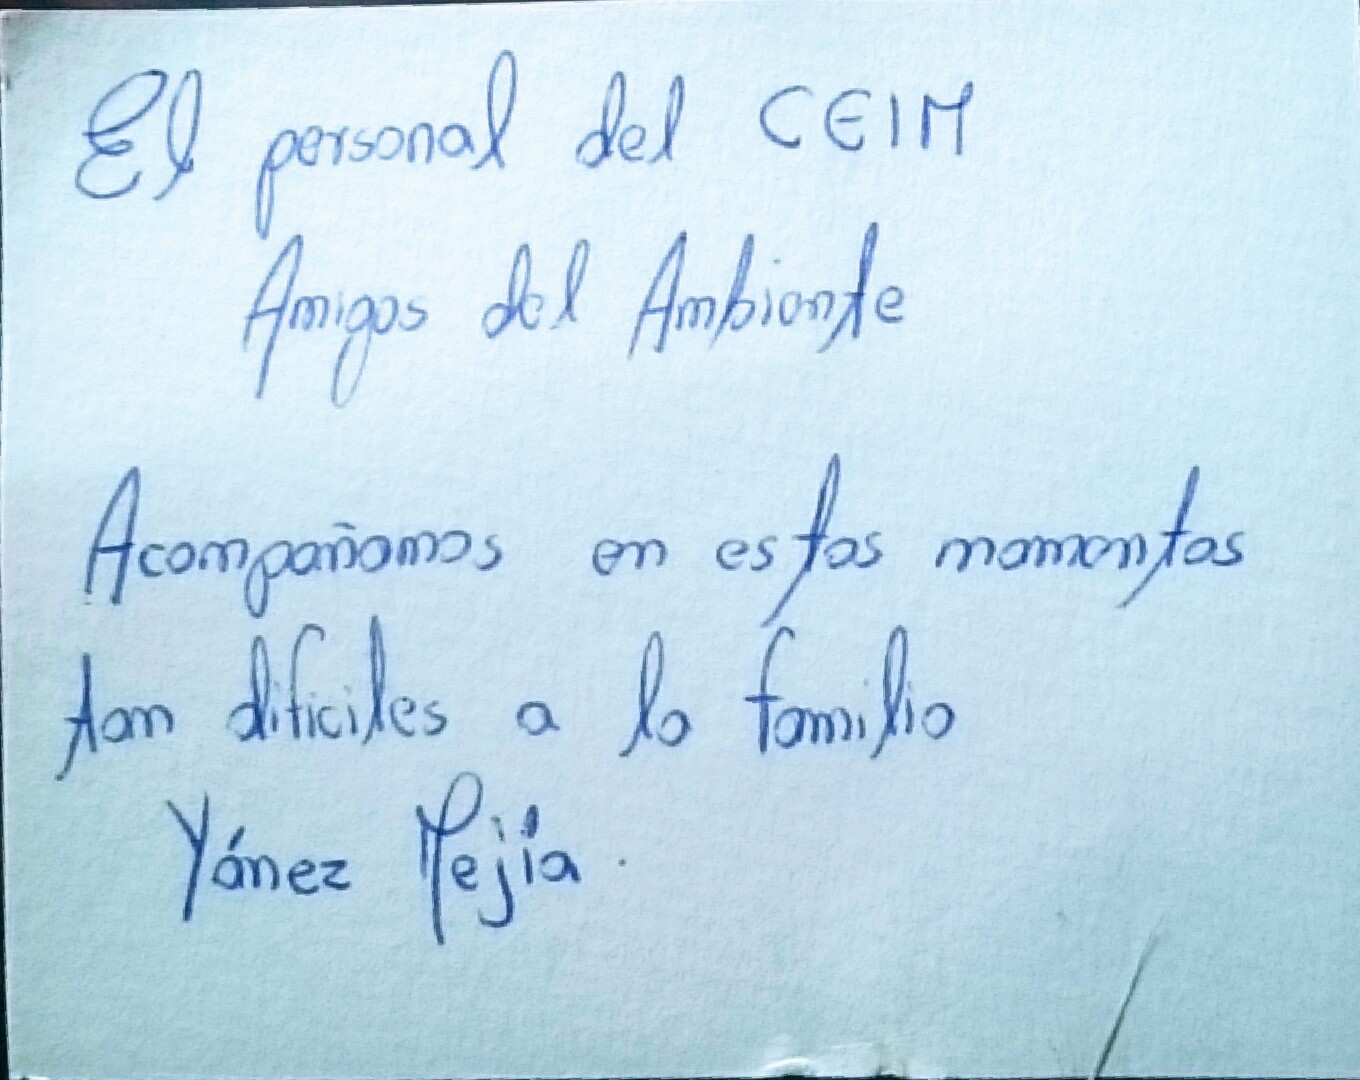 El personal del CEIM
Amigos del Ambiente
Acompañamos en estos momentos
tan dificiles a la familia
Yánez Mejía.